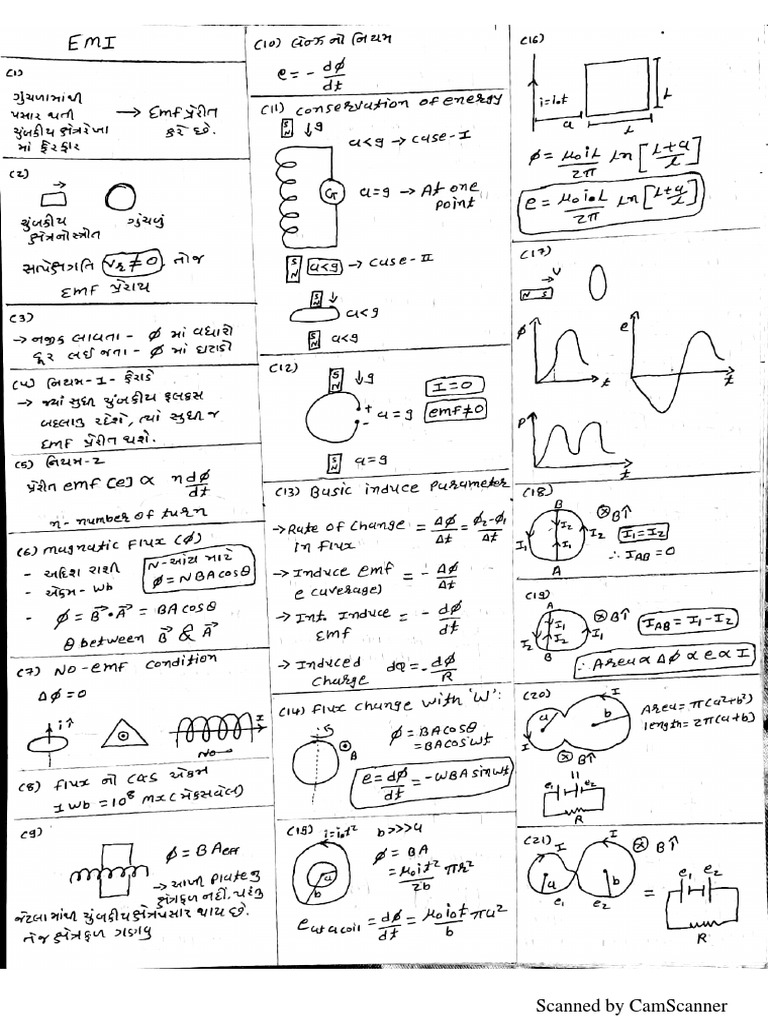 EMI
(1)
ગુંચળામાંથી
પસાર થતી → Emf પ્રેરીત
ચુંબકીય ક્ષેત્રરેખા કરે છે.
માં ફેરફાર
(2)
ચુંબકીય ગુંચળું
ક્ષેત્રનો સ્ત્રોત
સાપેક્ષગતિ Vr≠0 તોજ
EMF પ્રેરાય
(3)
→ નજીક લાવતા - φ માં વધારો
દૂર લઈ જતા - φ માં ઘટાડો
(4) નિયમ-I - ફેરાડે
→ જ્યાં સુધી ચુંબકીય ફલક્સ
બદલાતુ રહેશે, ત્યાં સુધી જ
EMF પ્રેરીત થશે.
(5) નિયમ-2
પ્રેરીત emf [e] ∝ n dφ/dt
n - number of turn
(6) Magnatic Flux (φ)
- અદિશ રાશી
- એકમ - Wb
N-આંટા માટે
φ = NBA cosθ
- φ = B⃗•A⃗ = BA cosθ
θ between B⃗ & A⃗
(7) NO-emf condition
Δφ = 0
i↑
I
NO
(8) flux નો CGS એકમ
1 Wb = 10⁸ Mx (મેક્સવેલ)
(9)
φ = BAeff
→ આખી Plate નુ
ક્ષેત્રફળ નહીં. પરંતુ
જેટલામાંથી ચુંબકીયક્ષેત્ર પસાર થાય છે.
તેજ ક્ષેત્રફળ ગણવુ
(10) લેન્ઝ નો નિયમ
e = - dφ/dt
(11) Conservation of energy
S N ↓g
a<g → Case-I
G
a=g → At one
point
S N a<g → Case-II
S N ↓
a<g
S N a<g
(12)
S N ↓g
I = 0
+ - a = g
emf ≠ 0
S N a=g
(13) Basic induce Parameter
→ Rate of Change in Flux = Δφ/Δt = φ₂-φ₁/Δt
→ Induce emf e (average) = - Δφ/Δt
→ Int. Induce EMF = - dφ/dt
→ Induced Charge dQ = - dφ/R
(14) Flux Change with 'W':
φ = BA cosθ
= BA cos wt
B
e = dφ/dt = -WBA sin wt
(15) i=i₀t² b>>>a
a
b
φ = BA
= μ₀it²/2b πr²
e at a coil = dφ/dt = μ₀i₀t/b πa²
(16)
i=i₀t
a
L
L
φ = μ₀iL/2π ln [L+a/L]
e = μ₀i₀L/2π ln [L+a/L]
(17)
V
N S
φ t
e t
P t
(18)
B
⊗B↑
I₁ I₂ I₁ I₂
I₁=I₂
∴ IAB = 0
A
(19)
A
⊗B↑
I₂ I₁ I₂ I₁
IAB = I₁ - I₂
B
∴ Area ∝ Δφ ∝ e ∝ I
(20)
I
a b
I
Area = π(a²+b²)
length = 2π(a+b)
⊗B↑
=
e₁ e₂
R
(21)
I I
⊗B↑
a b
e₁ e₂
=
e₁ e₂
R
Scanned by CamScanner